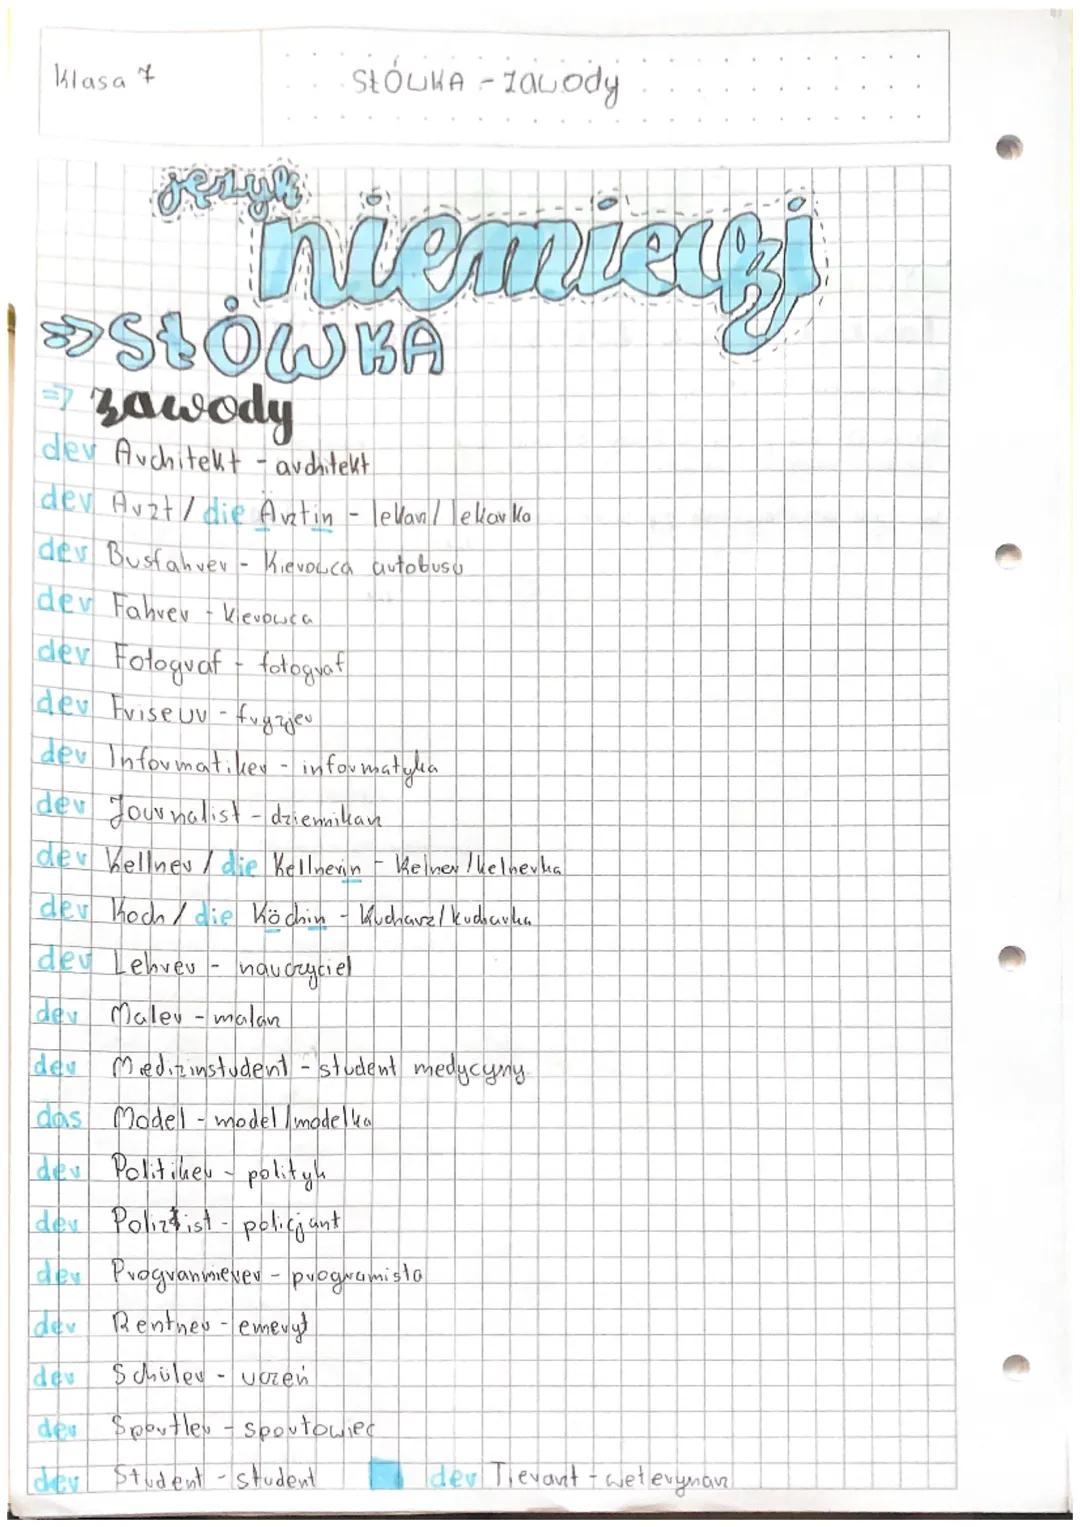 Klasa 7
SŁÓWKA - zawody
język
niemiecki
⇒ SŁÓWKA
⇒ zawody
der Architekt - architekt
der Arzt / die Ärztin - lekarz / lekarka
der Busfahrer - kierowca autobusu
der Fahrer - kierowca
der Fotograf - fotograf
der Friseur - fryzjer
der Informatiker - informatyka
der Journalist - dziennikarz
der Kellner / die Kellnerin - kelner / kelnerka
der Koch / die Köchin - kucharz / kucharka
der Lehrer - nauczyciel
der Maler - malarz
der Medizinstudent - student medycyny
das Model - model / modelka
der Politiker - polityk
der Polizist - policjant
der Programmierer - programista
der Rentner - emeryt
der Schüler - uczeń
der Sportler - sportowiec
der Student - student der Tierarzt - weterynarz